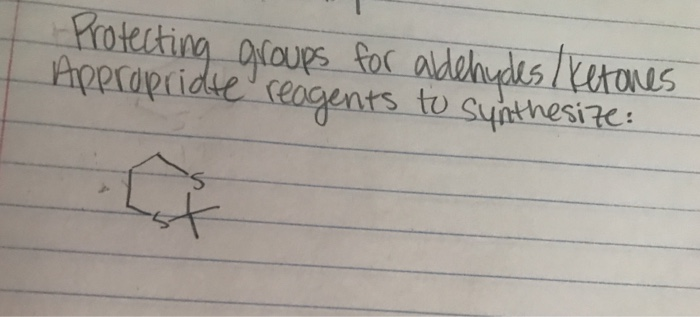 Protecting groups for aldehydes/Ketones
Appropriate reagents to synthesize:
S
S